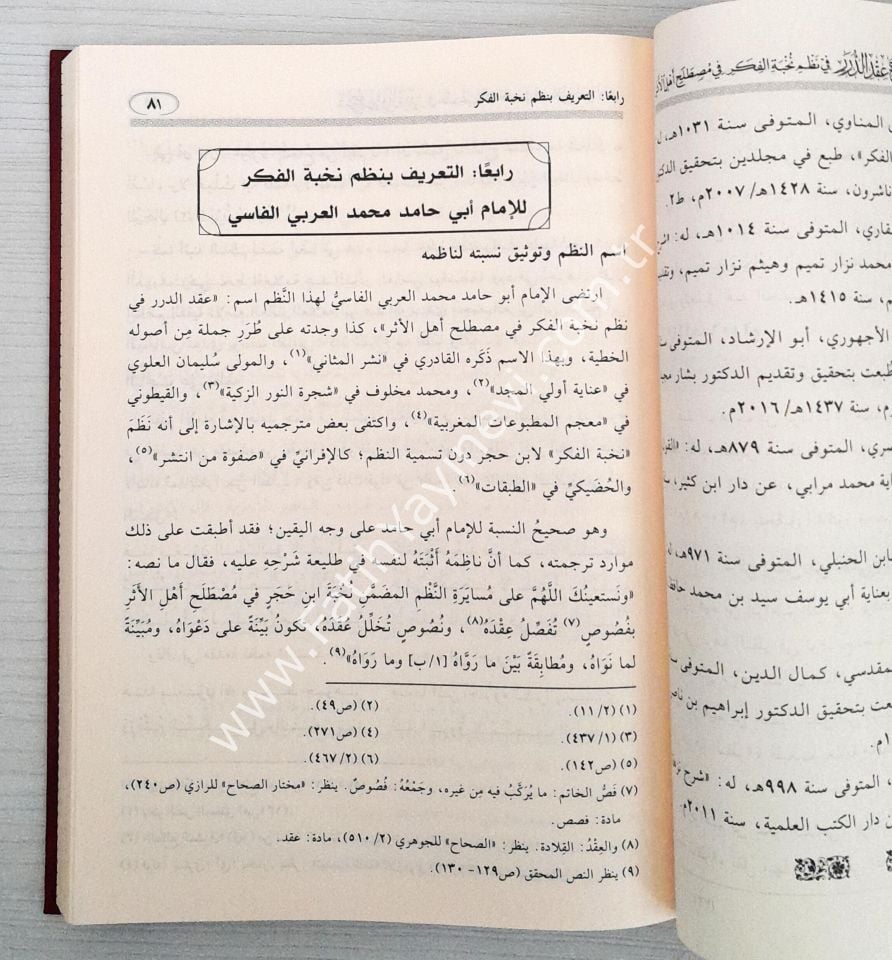 رابعًا: التعريف بنظم نخبة الفكر
٨١
رابعًا: التعريف بنظم نخبة الفكر
للإمام أبي حامد محمد العربي الفاسي
اسم النظم وتوثيق نسبته لناظمه
ارتضى الإمام أبو حامد محمد العربي الفاسيُّ لهذا النَّظم اسم: «عقد الدرر في
نظم نخبة الفكر في مصطلح أهل الأثر»، كذا وجدته على طُرَرِ جملة من أصوله
الخطية، وبهذا الاسم ذَكَره القادري في «نشر المثاني»(١)، والمولى سُليمان العلوي
في «عناية أولي المجد»(٢)، ومحمد مخلوف في «شجرة النور الزكية»(٣)، والقيطوني
في «معجم المطبوعات المغربية»(٤)، واكتفى بعض مترجميه بالإشارة إلى أنه نَظَمَ
«نخبة الفكر» لابن حجر دون تسمية النظم؛ كالإفرانيِّ في «صفوة من انتشر»(٥)،
والحُضَيكيِّ في «الطبقات»(٦).
وهو صحيحُ النسبة للإمام أبي حامد على وجه اليقين؛ فقد أطبقت على ذلك
موارد ترجمته، كما أنَّ ناظِمَهُ أَثْبَتَهُ لنفسه في طليعة شَرْحِهِ عليه، فقال ما نصه:
«ونَستعينُكَ اللَّهُمَّ على مُسايَرَةِ النَّظْمِ المضمَّن نُخْبَةَ ابنِ حَجَرٍ في مُصْطَلَحِ أهْلِ الأثَرِ
بفُصُوصٍ(٧) تُفَصِّلُ عِقْدَهُ(٨)، ونُصُوصٍ تُحَلِّلُ عَقْدَهُ، تكونُ بَيِّنَةً على دَعْوَاهُ، ومُبَيِّنَةً
لما نَوَاهُ، ومُطابِقَةً بَيْنَ ما رَوَّاهُ [١/ب] وما رَوَاهُ»(٩).
(١) (١١/٢).
(٢) (ص٤٩).
(٣) (٤٣٧/١).
(٤) (ص٢٧١).
(٥) (ص١٤٢).
(٦) (٤٦٧/٢).
(٧) فَصُّ الخاتم: ما يُرَكَّبُ فيه مِن غيره، وجَمْعُهُ: فُصُوصٌ. ينظر: «مختار الصحاح» للرازي (ص٢٤٠)،
مادة: فصص.
(٨) والعِقْدُ: القِلادة. ينظر: «الصحاح» للجوهري (٥١٠/٢)، مادة: عقد.
(٩) ينظر النص المحقق (ص١٢٩- ١٣٠).
عِقْدِ الدُّرَرْ فِي نَظْمِ نُخْبَةِ الفِكَرِ فِي مُصْطَلَحِ أهل الأثر
المناوي، المتوفى سنة ١٠٣١هـ، له
الفكر»، طبع في مجلدين بتحقيق
ناشرون، سنة ١٤٢٨هـ/٢٠٠٧م، ط٢.
القاري، المتوفى سنة ١٠١٤هـ، له:
محمد نزار تميم وهيثم نزار تميم،
م، سنة ١٤١٥هـ.
الأجهوري، أبو الإرشاد، المتوفى
طُبعت بتحقيق وتقديم الدكتور بشار
م، سنة ١٤٣٧هـ/٢٠١٦م.
المتوفى سنة ٨٧٩هـ، له:
محمد مرابي، عن دار ابن كثير،
ابن الحنبلي، المتوفى سنة ٩٧١هـ،
بعناية أبي يوسف سيد بن محمد
المقدسي، كمال الدين، المتوفى
بتحقيق الدكتور إبراهيم بن
المتوفى سنة ٩٩٨هـ، له: «شرح
دار الكتب العلمية، سنة ٢٠١١م.
www.FatihYayinevi.com.tr